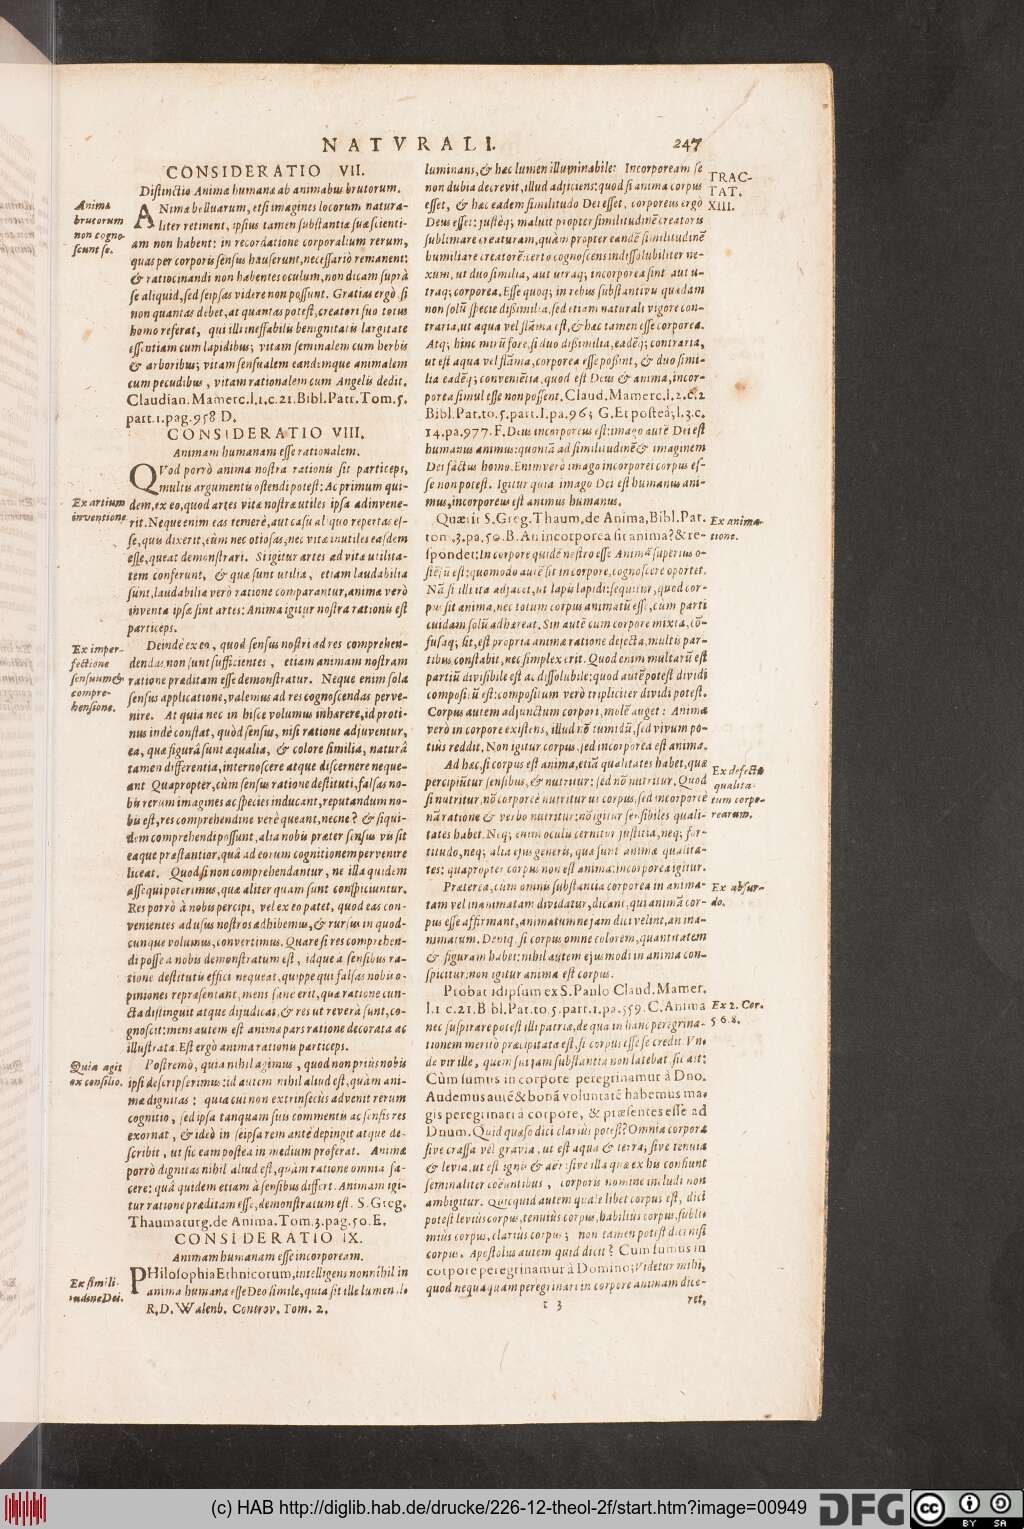 NATVRALI.
247
CONSIDERATIO VII.
Distinctio Animæ humanæ ab animabus brutorum.
Anima
brutorum
non cogno-
scunt se.
ANimæ belluarum, etsi imagines locorum natura-
liter retinent, ipsius tamen substantiæ suæ scienti-
am non habent: in recordatione corporalium rerum,
quas per corporis sensus hauserunt, necessariò remanent:
& ratiocinandi non habentes oculum, non dicam suprà
se aliquid, sed seipsas videre non possunt. Gratias ergò si
non quantas debet, at quantas potest, creatori suo totus
homo referat, qui illi ineffabilis benignitatis largitate
essentiam cum lapidibus; vitam seminalem cum herbis
& arboribus; vitam sensualem eandemque animalem
cum pecudibus, vitam rationalem cum Angelis dedit.
Claudian. Mamerc. l.1.c.21. Bibl. Patr. Tom. 5.
part. 1. pag. 958 D.
CONSIDERATIO VIII.
Animam humanam esse rationalem.
Ex artium
inventione
QVod porrò anima nostra rationis sit particeps,
multis argumentis ostendi potest: Ac primum qui-
dem, ex eo, quod artes vitæ nostræ utiles ipsa adinvene-
rit. Neque enim eas temerè, aut casu aliquo repertas es-
se, quis dixerit, cùm nec otiosas, nec vitæ inutiles easdem
esse, queat demonstrari. Si igitur artes ad vitæ utilita-
tem conferunt, & quæ sunt utilia, etiam laudabilia
sunt, laudabilia verò ratione comparantur, anima verò
inventa ipsæ sint artes: Anima igitur nostra rationis est
particeps.
Ex imper-
fectione
sensuum &
compre-
hensione.
Deinde ex eo, quod sensus nostri ad res comprehen-
dendas non sunt sufficientes, etiam animam nostram
ratione præditam esse demonstratur. Neque enim sola
sensus applicatione, valemus ad res cognoscendas perve-
nire. At quia nec in hisce volumus inhærere, id proti-
nus indè constat, quòd sensus, nisi ratione adjuventur,
ea, quæ figurâ sunt æqualia, & colore similia, naturâ
tamen differentia, internoscere atque discernere neque-
ant Quapropter, cùm sensus ratione destituti, falsas no-
bis rerum imagines ac species inducant, reputandum no-
bis est, res comprehendine verè queant, necne? & siqui-
dem comprehendi possunt, alia nobis præter sensus vis sit
eaque præstantior, quâ ad eorum cognitionem pervenire
liceat. Quodsi non comprehendantur, ne illa quidem
assequi poterimus, quæ aliter quam sunt conspiciuntur.
Res porrò à nobis percipi, vel ex eo patet, quod eas con-
venientes ad usus nostros adhibemus, & rursus in quod-
cunque volumus, convertimus. Quare si res comprehen-
di posse a nobis demonstratum est, idque a sensibus ra-
tione destitutis effici nequeat, quippe qui falsas nobis o-
piniones repræsentant, mens sanè erit, quæ ratione cun-
cta distinguit atque dijudicat, & res ut reverà sunt, co-
gnoscit: mens autem est animæ pars ratione decorata ac
illustrata. Est ergò anima rationis particeps.
Quia agit
ex consilio.
Postremò, quia nihil agimus, quod non priùs nobis
ipsi descripserimus: id autem nihil aliud est, quàm ani-
mæ dignitas: quia cui non extrinsecùs advenit rerum
cognitio, sed ipsa tanquam suis commentis ac sensis res
exornat, & ideò in seipsa rem antè depingit atque de-
scribit, ut sic eam postea in medium proferat. Animæ
porrò dignitas nihil aliud est, quàm ratione omnia fa-
cere: quâ quidem etiam à sensibus differt. Animam igi-
tur ratione præditam esse, demonstratum est. S. Greg.
Thaumaturg. de Anima. Tom. 3. pag. 50. E.
CONSIDERATIO IX.
Animam humanam esse incorpoream.
Ex simili-
tudine Dei.
PHilosophia Ethnicorum, intelligens nonnihil in
anima humana esse Deo simile, quia sit ille lumen il-
R. D. Walenb. Controv. Tom. 2.
luminans, & hæc lumen illuminabile: Incorpoream se
non dubia decrevit, illud adjiciens: quod si anima corpus
esset, & hæc eadem similitudo Dei esset, corporeus ergò
Deus esset: justèq; maluit propter similitudinē creatoris
sublimare creaturam, quàm propter eandē similitudinē
humiliare creatorē: certo cognoscens indissolubiliter ne-
xum, ut duo similia, aut utraq; incorporea sint aut u-
traq; corporea. Esse quoq; in rebus substantivis quædam
non solū specie dissimilia, sed etiam naturali vigore con-
traria, ut aqua vel flāma est, & hæc tamen esse corporea.
Atq; hinc mirū fore, si duo dissimilia, eadēq; contraria,
ut est aqua vel flāma, corporea esse possint, & duo simi-
lia eadēq; convenientia, quod est Deus & anima, incor-
porea simul esse non possent. Claud. Mamerc. l.1.c.2
Bibl. Pat. to. 5. part. 1. pa. 963 G. Et posteà; l.3.c.
14. pa. 977. F. Deus incorporeus est: imago autē Dei est
humanus animus: quoniā ad similitudinē & imaginem
Dei factus homo. Enimverò imago incorporei corpus es-
se non potest. Igitur quia imago Dei est humanus ani-
mus, incorporeus est animus humanus.
TRAC-
TAT.
XIII.
Ex anima-
tione.
Quærit S. Greg. Thaum. de Anima, Bibl. Pat.
tom. 3. pa. 50. B. An incorporea sit anima? & re-
spondet: In corpore quidē nostro esse Animā superius o-
stēsū est: quomodo autē sit in corpore, cognoscere oportet.
Nā si illi ita adjacet, ut lapis lapidi: sequitur, quod cor-
pus sit anima, nec totum corpus animatū esse, cum parti
cuidam solū adhæreat. Sin autē cum corpore mixta, cō-
fusaq; sit, est propria animæ ratione dejecta, multis par-
tibus constabit, nec simplex erit. Quod enim multarū est
partiū divisibile est ac dissolubile: quod autē potest dividi
compositū est: compositum verò tripliciter dividi potest.
Corpus autem adjunctum corpori, molē auget: Anima
verò in corpore existens, illud nō tumidū, sed vivum po-
tiùs reddit. Non igitur corpus, sed incorporea est anima.
Ex defectu
qualita-
tum corpo-
rearum.
Ad hæc, si corpus est anima, etiā qualitates habet, quæ
percipiuntur sensibus, & nutritur: sed nō nutritur. Quod
si nutritur, nō corporeè nutritur ut corpus, sed incorporeè
nā ratione & verbo nutritur: nō igitur sensibiles quali-
tates habet. Neq; enim oculis cernitur justitia, neq; for-
titudo, neq; alia ejus generis, quæ sunt animæ qualita-
tes: quapropter corpus non est anima: incorporea igitur.
Ex absur-
do.
Præterea, cum omnis substantia corporea in anima-
tam vel inanimatam dividatur, dicant, qui animā cor-
pus esse affirmant, animatumne jam dici velint, an ina-
nimatum. Deniq. si corpus omne colorem, quantitatem
& figuram habet: nihil autem ejusmodi in anima con-
spicitur: non igitur anima est corpus.
Ex 2. Cor.
5 6.8.
Probat idipsum ex S. Paulo Claud. Mamer.
l.1 c.21. Bibl. Pat. to 5. part. 1. pa. 959. C. Anima
nec suspirare potest illi patriæ, de qua in hanc peregrina-
tionem meritò præcipitata est, si corpus esse se credit Vn-
de vir ille, quem sui jam substantia non latebat sic ait:
Cùm sumus in corpore peregrinamur à Dno.
Audemus autē & bonā voluntatē habemus ma-
gis peregrinari à corpore, & præsentes esse ad
Dnum. Quid quæso dici clariùs potest? Omnia corpora
sive crassa vel gravia, ut est aqua & terra; sive tenuia
& levia, ut est ignis & aër: sive illa quæ ex his confiunt
seminaliter coëuntibus, corporis nomine includi non
ambigitur. Quicquid autem qualelibet corpus est, dici
potest leviùs corpus, tenuiùs corpus, habilius corpus, subli-
miùs corpus, clariùs corpus; non tamen potest dici nisi
corpus. Apostolus autem quid dicit? Cum sumus in
corpore peregrinamur à Domino; Videtur mihi,
quod nequaquam peregrinari in corpore animam dice-
t 3
ret,
(c) HAB http://diglib.hab.de/drucke/226-12-theol-2f/start.htm?image=00949
DFG
cc
BY SA